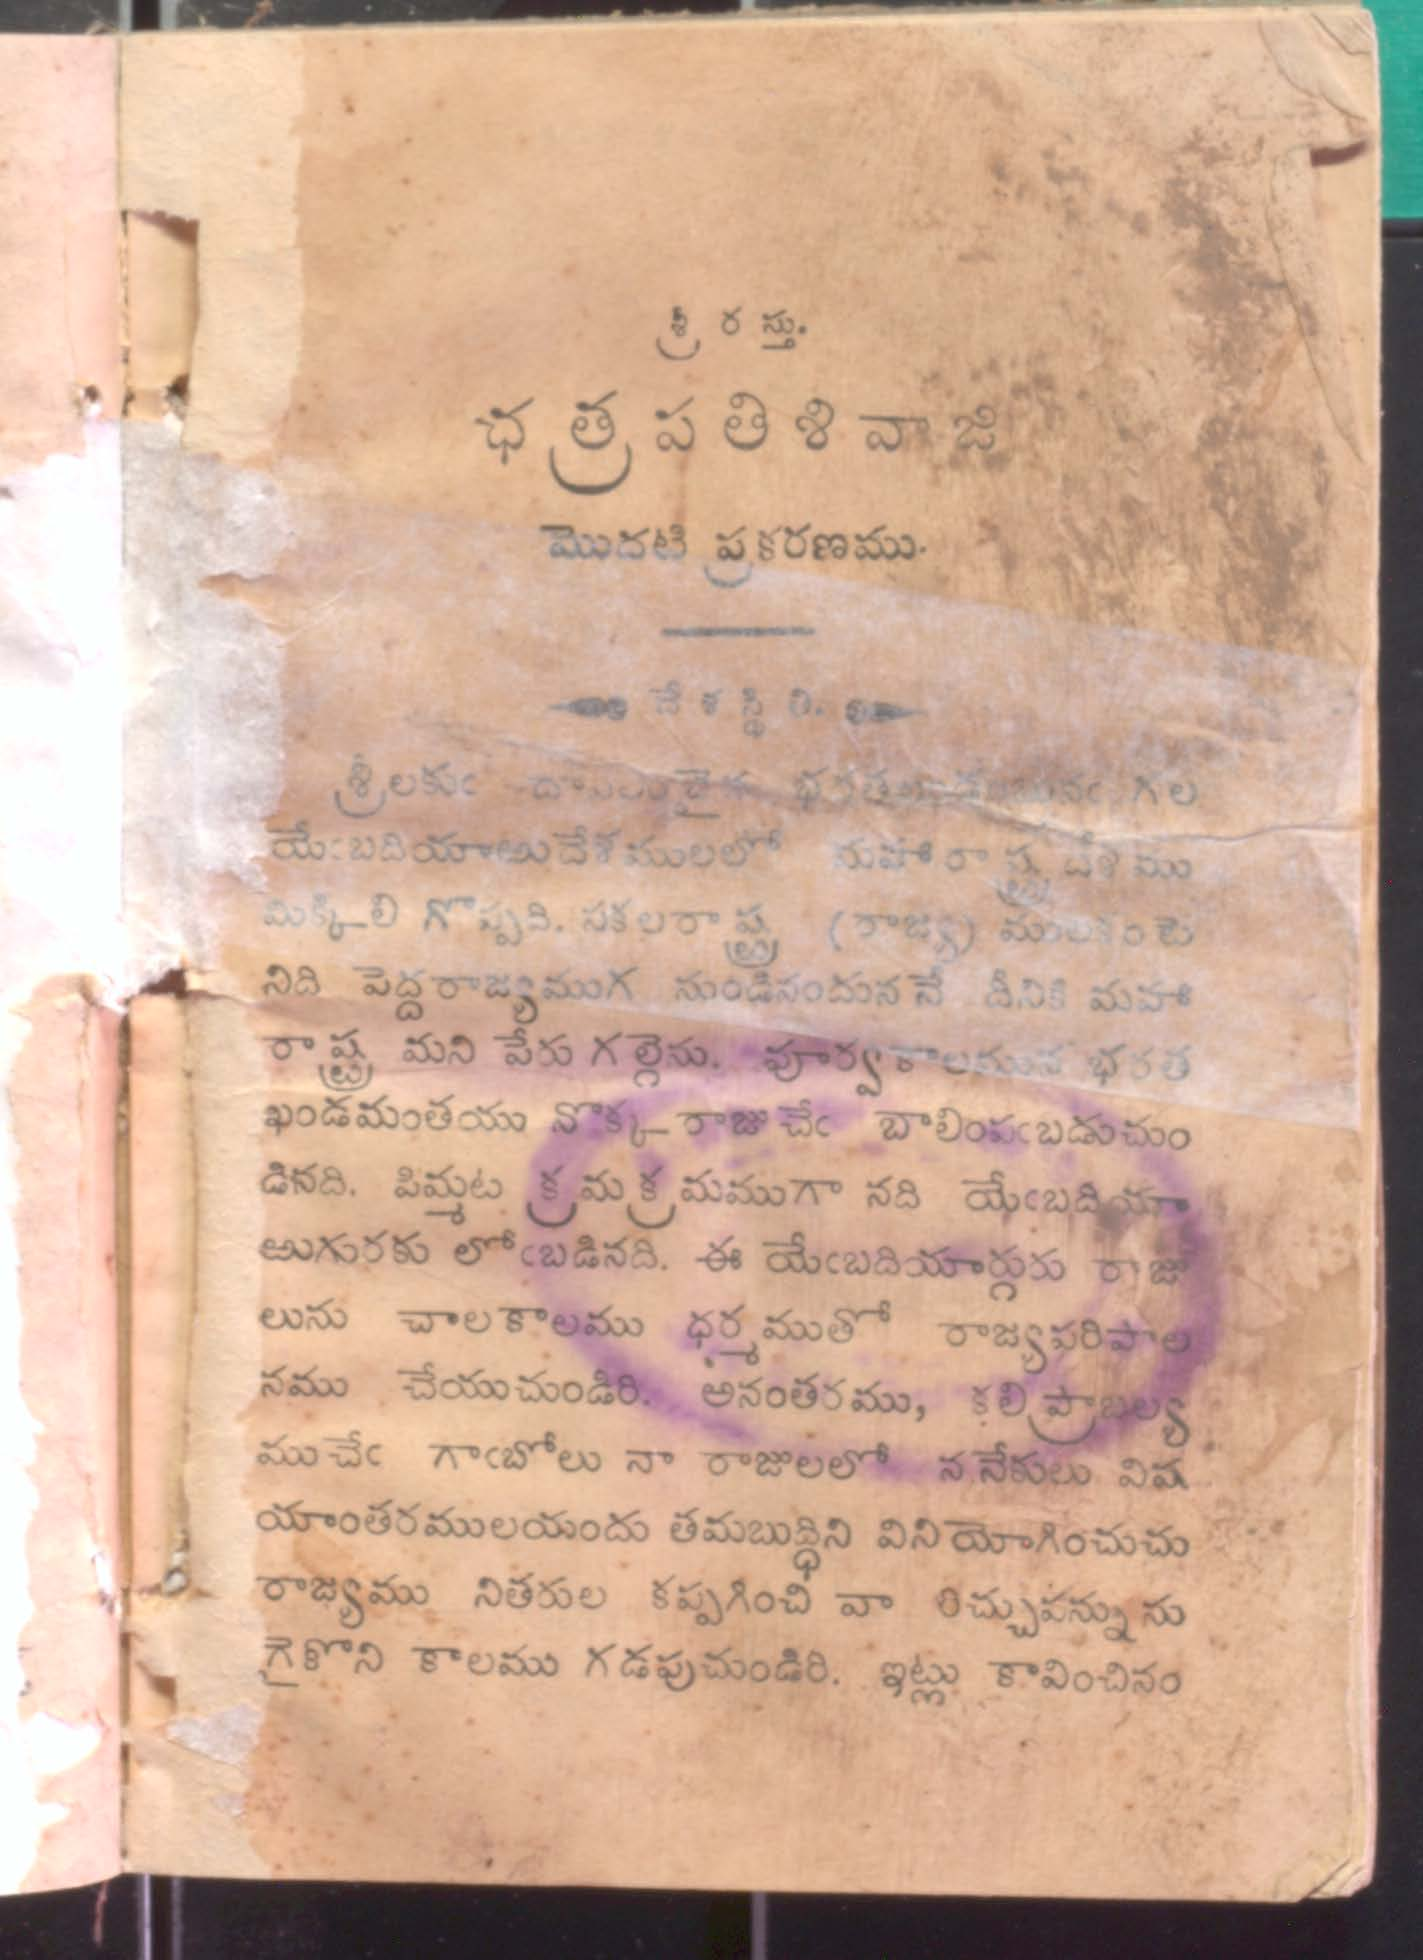 శ్రీ ర స్తు.
ఛ త్ర ప తి శి వా జి
మొదటి ప్రకరణము.
దే శ స్థి తి.
శ్రీలకుఁ గల
యేఁబదియాఱుదేశములలో మహారాష్ట్ర దేశము
మిక్కిలి గొప్పది. సకలరాష్ట్ర (రాజ్య) ములకంటె
నిది పెద్దరాజ్యముగ నుండినందుననే దీనికి మహా
రాష్ట్ర మని పేరు గల్గెను. పూర్వకాలమున భరత
ఖండమంతయు నొక్క రాజుచేఁ బాలింపఁబడుచుం
డినది. పిమ్మట క్రమక్రమముగా నది యేఁబదియా
ఱుగురకు లోఁబడినది. ఈ యేఁబదియార్గురు రాజు
లును చాలకాలము ధర్మముతో రాజ్యపరిపాల
నము చేయుచుండిరి. అనంతరము, కలిప్రాబల్య
ముచేఁ గాఁబోలు నా రాజులలో ననేకులు విష
యాంతరములయందు తమబుద్ధిని వినియోగించుచు
రాజ్యము నితరుల కప్పగించి వా రిచ్చుపన్నును
గైకొని కాలము గడపుచుండిరి. ఇట్లు కావించినం